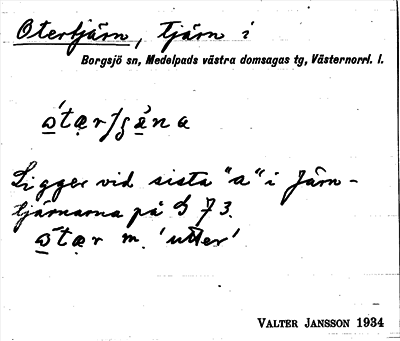 Otertjärn, tjärn i
Borgsjö sn, Medelpads västra domsagas tg, Västernorrl. l.
Ligger vid sista "a" i Järn-
tjärnarna på S 73.
m. 'utter'
VALTER JANSSON 1934